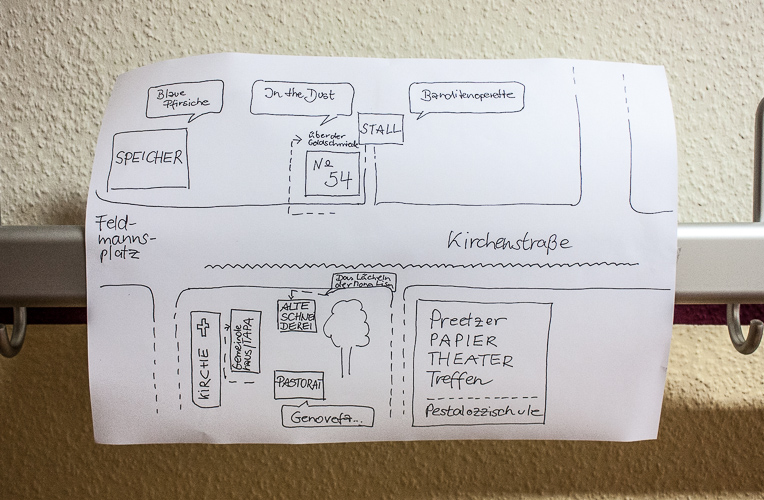 Blaue
Pfirsiche
In the Dust
Banditenoperette
SPEICHER
über der
Goldschmiede
STALL
No
54
Feld-
manns-
platz
Kirchenstraße
Das Lächeln
der Mona Lisa
ALTE
SCHNEI
DEREI
KIRCHE
Gemeinde
haus/TAPA
PASTORAT
Genovefa...
Preetzer
PAPIER
THEATER
Treffen
Pestalozzischule